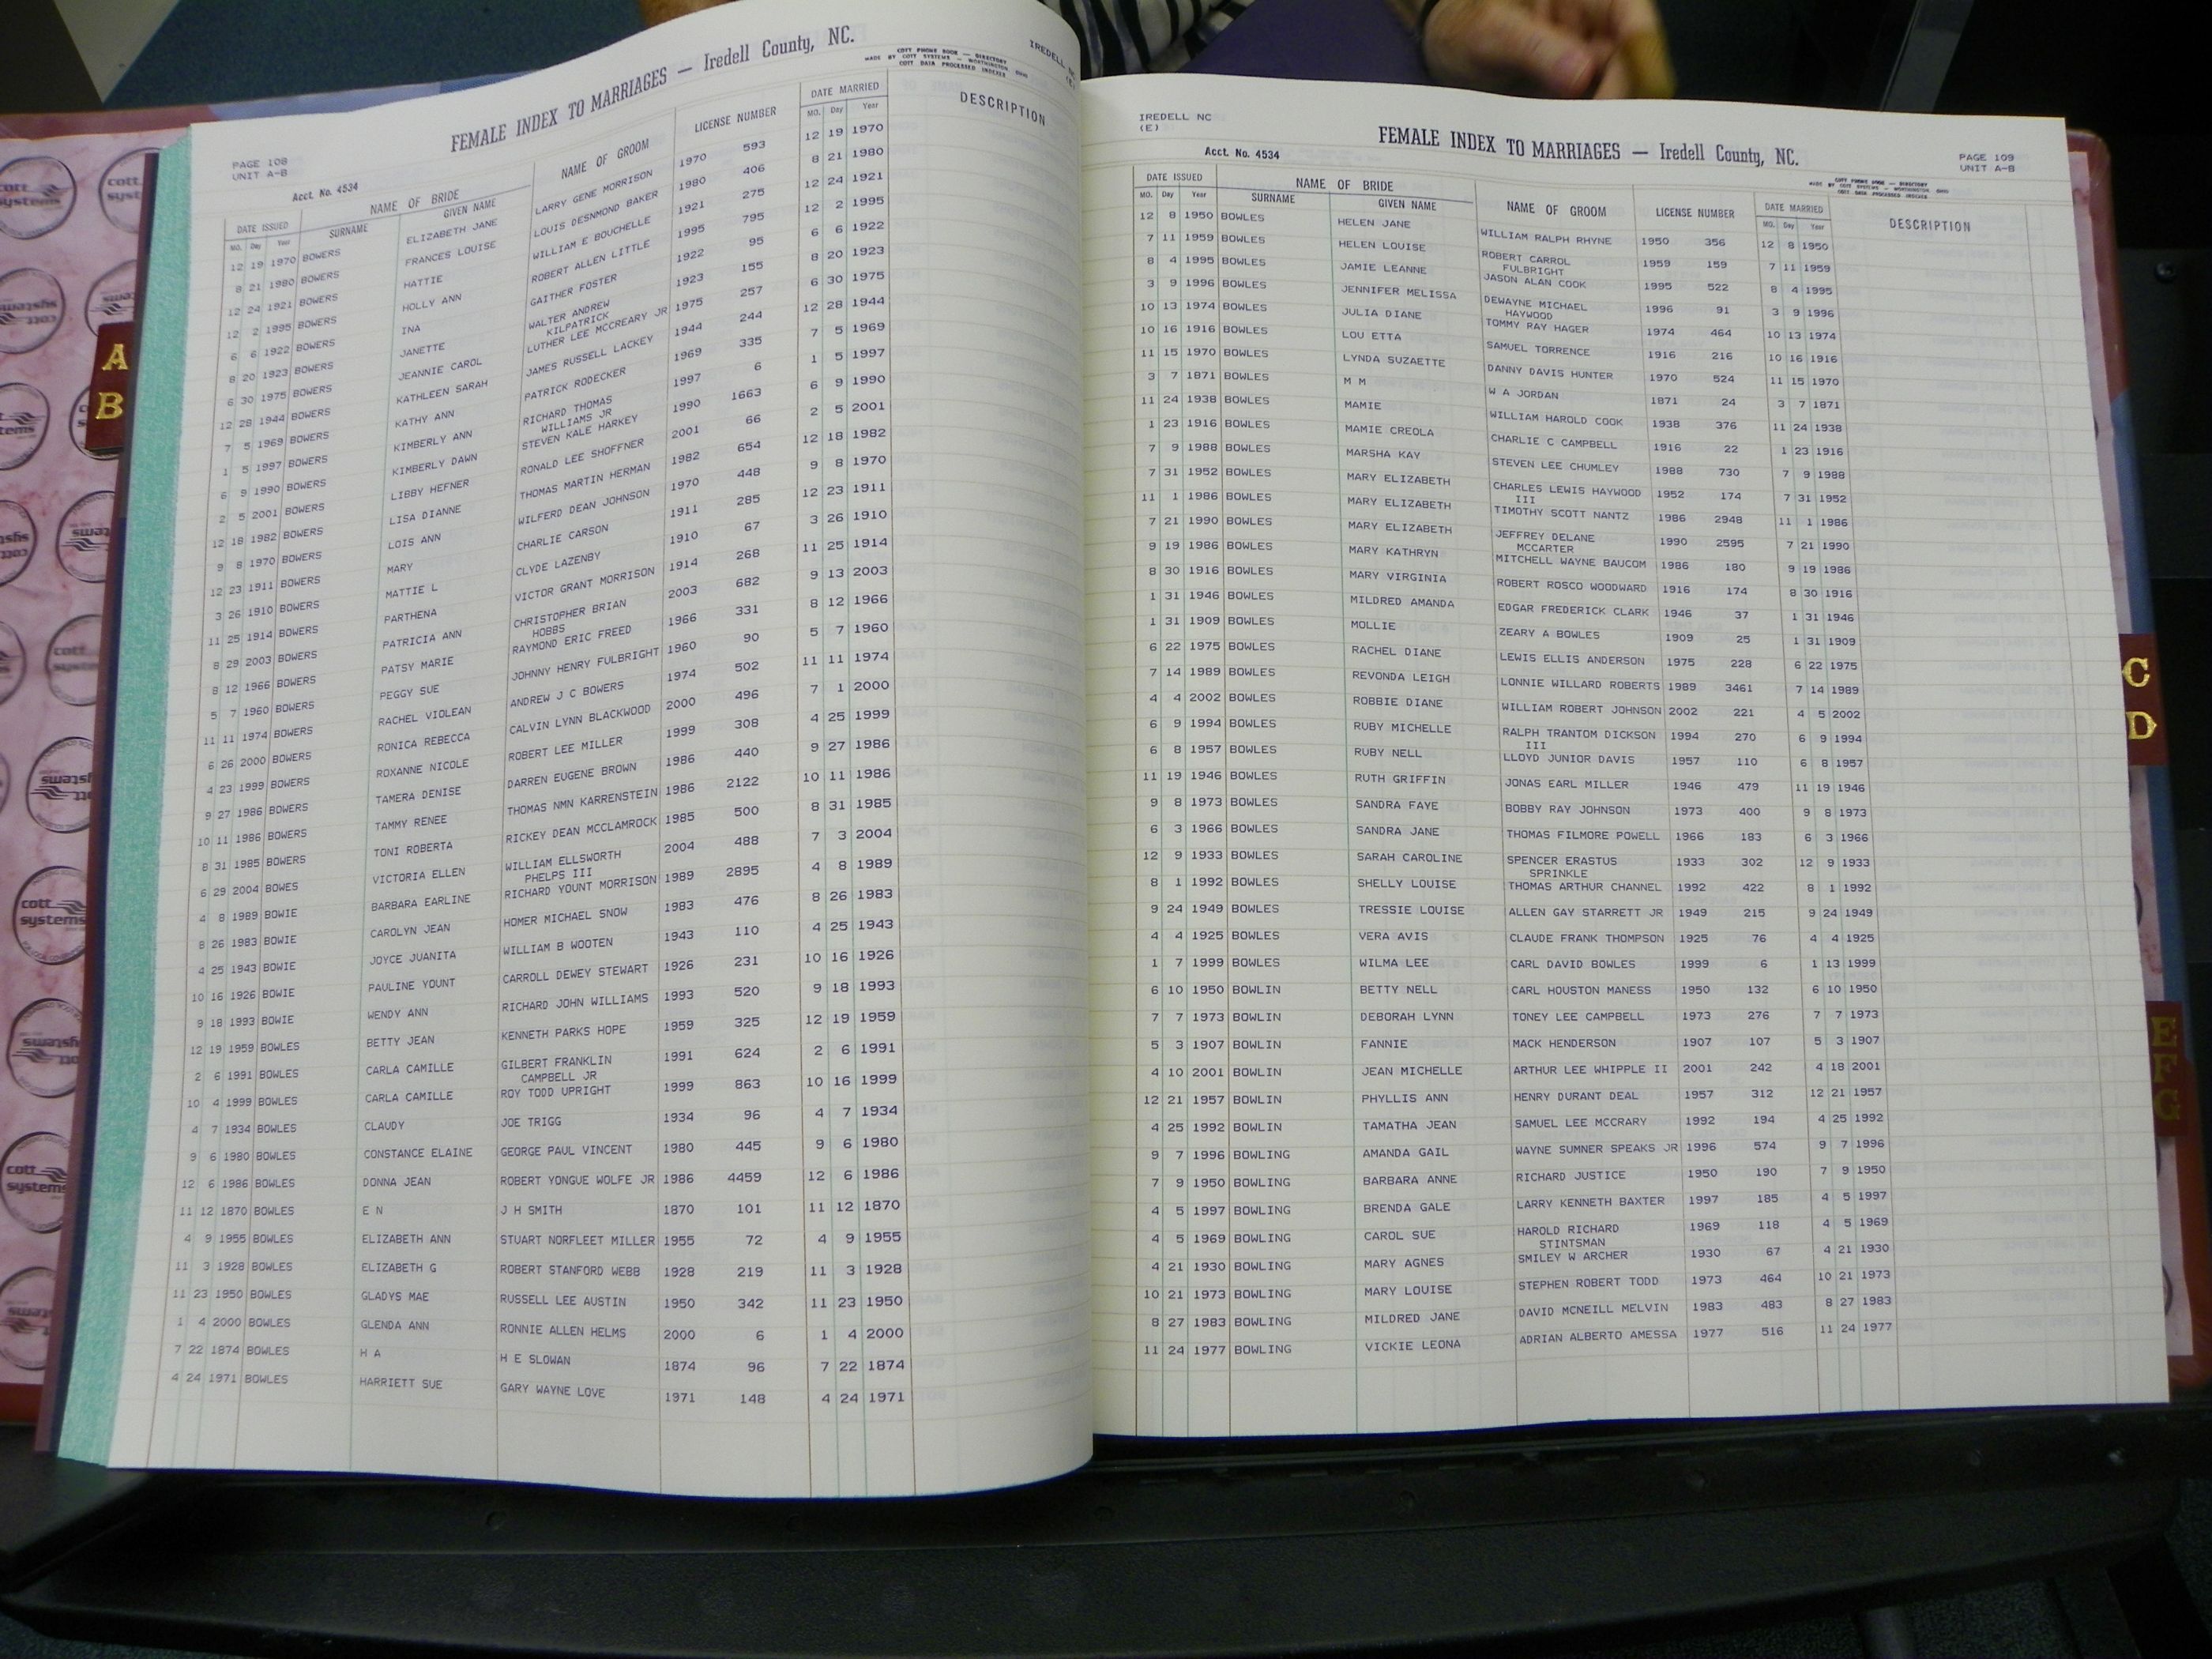 FEMALE INDEX TO MARRIAGES — Iredell County, NC.
MADE BY COTT SYSTEMS — WORTHINGTON OHIO
COTT DATA PROCESSED INDEXES
IREDELL NC
(E)
PAGE 108
UNIT A-B
Acct. No. 4534
DATE ISSUED NAME OF BRIDE NAME OF GROOM LICENSE NUMBER DATE MARRIED DESCRIPTION
MO. Day Year SURNAME GIVEN NAME MO. Day Year
12 19 1970 BOWERS ELIZABETH JANE LARRY GENE MORRISON 1970 593 12 19 1970
8 21 1980 BOWERS FRANCES LOUISE LOUIS DESNMOND BAKER 1980 406 8 21 1980
12 24 1921 BOWERS HATTIE WILLIAM E BOUCHELLE 1921 275 12 24 1921
12 2 1995 BOWERS HOLLY ANN ROBERT ALLEN LITTLE 1995 795 12 2 1995
6 6 1922 BOWERS INA GAITHER FOSTER 1922 95 6 6 1922
8 20 1923 BOWERS JANETTE WALTER ANDREW 1923 155 8 20 1923
KILPATRICK
6 30 1975 BOWERS JEANNIE CAROL LUTHER LEE MCCREARY JR 1975 257 6 30 1975
12 28 1944 BOWERS KATHLEEN SARAH JAMES RUSSELL LACKEY 1944 244 12 28 1944
7 5 1969 BOWERS KATHY ANN PATRICK RODECKER 1969 335 7 5 1969
1 5 1997 BOWERS KIMBERLY ANN RICHARD THOMAS 1997 6 1 5 1997
WILLIAMS JR
6 9 1990 BOWERS KIMBERLY DAWN STEVEN KALE HARKEY 1990 1663 6 9 1990
2 5 2001 BOWERS LIBBY HEFNER RONALD LEE SHOFFNER 2001 66 2 5 2001
12 18 1982 BOWERS LISA DIANNE THOMAS MARTIN HERMAN 1982 654 12 18 1982
9 8 1970 BOWERS LOIS ANN WILFERD DEAN JOHNSON 1970 448 9 8 1970
12 23 1911 BOWERS MARY CHARLIE CARSON 1911 285 12 23 1911
3 26 1910 BOWERS MATTIE L CLYDE LAZENBY 1910 67 3 26 1910
11 25 1914 BOWERS PARTHENA VICTOR GRANT MORRISON 1914 268 11 25 1914
8 29 2003 BOWERS PATRICIA ANN CHRISTOPHER BRIAN 2003 682 9 13 2003
HOBBS
8 12 1966 BOWERS PATSY MARIE RAYMOND ERIC FREED 1966 331 8 12 1966
5 7 1960 BOWERS PEGGY SUE JOHNNY HENRY FULBRIGHT 1960 90 5 7 1960
11 11 1974 BOWERS RACHEL VIOLEAN ANDREW J C BOWERS 1974 502 11 11 1974
6 26 2000 BOWERS RONICA REBECCA CALVIN LYNN BLACKWOOD 2000 496 7 1 2000
4 23 1999 BOWERS ROXANNE NICOLE ROBERT LEE MILLER 1999 308 4 25 1999
9 27 1986 BOWERS TAMERA DENISE DARREN EUGENE BROWN 1986 440 9 27 1986
10 11 1986 BOWERS TAMMY RENEE THOMAS NMN KARRENSTEIN 1986 2122 10 11 1986
8 31 1985 BOWERS TONI ROBERTA RICKEY DEAN MCCLAMROCK 1985 500 8 31 1985
6 29 2004 BOWES VICTORIA ELLEN WILLIAM ELLSWORTH 2004 488 7 3 2004
PHELPS III
4 8 1989 BOWIE BARBARA EARLINE RICHARD YOUNT MORRISON 1989 2895 4 8 1989
8 26 1983 BOWIE CAROLYN JEAN HOMER MICHAEL SNOW 1983 476 8 26 1983
4 25 1943 BOWIE JOYCE JUANITA WILLIAM B WOOTEN 1943 110 4 25 1943
10 16 1926 BOWIE PAULINE YOUNT CARROLL DEWEY STEWART 1926 231 10 16 1926
9 18 1993 BOWIE WENDY ANN RICHARD JOHN WILLIAMS 1993 520 9 18 1993
12 19 1959 BOWLES BETTY JEAN KENNETH PARKS HOPE 1959 325 12 19 1959
2 6 1991 BOWLES CARLA CAMILLE GILBERT FRANKLIN 1991 624 2 6 1991
CAMPBELL JR
10 4 1999 BOWLES CARLA CAMILLE ROY TODD UPRIGHT 1999 863 10 16 1999
4 7 1934 BOWLES CLAUDY JOE TRIGG 1934 96 4 7 1934
9 6 1980 BOWLES CONSTANCE ELAINE GEORGE PAUL VINCENT 1980 445 9 6 1980
12 6 1986 BOWLES DONNA JEAN ROBERT YONGUE WOLFE JR 1986 4459 12 6 1986
11 12 1870 BOWLES E N J H SMITH 1870 101 11 12 1870
4 9 1955 BOWLES ELIZABETH ANN STUART NORFLEET MILLER 1955 72 4 9 1955
11 3 1928 BOWLES ELIZABETH G ROBERT STANFORD WEBB 1928 219 11 3 1928
11 23 1950 BOWLES GLADYS MAE RUSSELL LEE AUSTIN 1950 342 11 23 1950
1 4 2000 BOWLES GLENDA ANN RONNIE ALLEN HELMS 2000 6 1 4 2000
7 22 1874 BOWLES H A H E SLOWAN 1874 96 7 22 1874
4 24 1971 BOWLES HARRIETT SUE GARY WAYNE LOVE 1971 148 4 24 1971
IREDELL NC
(E)
FEMALE INDEX TO MARRIAGES — Iredell County, NC.
PAGE 109
UNIT A-B
Acct. No. 4534
DATE ISSUED NAME OF BRIDE NAME OF GROOM LICENSE NUMBER DATE MARRIED DESCRIPTION
MO. Day Year SURNAME GIVEN NAME MO. Day Year
12 8 1950 BOWLES HELEN JANE WILLIAM RALPH RHYNE 1950 356 12 8 1950
7 11 1959 BOWLES HELEN LOUISE ROBERT CARROL 1959 159 7 11 1959
FULBRIGHT
8 4 1995 BOWLES JAMIE LEANNE JASON ALAN COOK 1995 522 8 4 1995
3 9 1996 BOWLES JENNIFER MELISSA DEWAYNE MICHAEL 1996 91 3 9 1996
HAYWOOD
10 13 1974 BOWLES JULIA DIANE TOMMY RAY HAGER 1974 464 10 13 1974
10 16 1916 BOWLES LOU ETTA SAMUEL TORRENCE 1916 216 10 16 1916
11 15 1970 BOWLES LYNDA SUZAETTE DANNY DAVIS HUNTER 1970 524 11 15 1970
3 7 1871 BOWLES M M W A JORDAN 1871 24 3 7 1871
11 24 1938 BOWLES MAMIE WILLIAM HAROLD COOK 1938 376 11 24 1938
1 23 1916 BOWLES MAMIE CREOLA CHARLIE C CAMPBELL 1916 22 1 23 1916
7 9 1988 BOWLES MARSHA KAY STEVEN LEE CHUMLEY 1988 730 7 9 1988
7 31 1952 BOWLES MARY ELIZABETH CHARLES LEWIS HAYWOOD 1952 174 7 31 1952
III
11 1 1986 BOWLES MARY ELIZABETH TIMOTHY SCOTT NANTZ 1986 2948 11 1 1986
7 21 1990 BOWLES MARY ELIZABETH JEFFREY DELANE 1990 2595 7 21 1990
MCCARTER
9 19 1986 BOWLES MARY KATHRYN MITCHELL WAYNE BAUCOM 1986 180 9 19 1986
8 30 1916 BOWLES MARY VIRGINIA ROBERT ROSCO WOODWARD 1916 174 8 30 1916
1 31 1946 BOWLES MILDRED AMANDA EDGAR FREDERICK CLARK 1946 37 1 31 1946
1 31 1909 BOWLES MOLLIE ZEARY A BOWLES 1909 25 1 31 1909
6 22 1975 BOWLES RACHEL DIANE LEWIS ELLIS ANDERSON 1975 228 6 22 1975
7 14 1989 BOWLES REVONDA LEIGH LONNIE WILLARD ROBERTS 1989 3461 7 14 1989
4 4 2002 BOWLES ROBBIE DIANE WILLIAM ROBERT JOHNSON 2002 221 4 5 2002
6 9 1994 BOWLES RUBY MICHELLE RALPH TRANTOM DICKSON 1994 270 6 9 1994
III
6 8 1957 BOWLES RUBY NELL LLOYD JUNIOR DAVIS 1957 110 6 8 1957
11 19 1946 BOWLES RUTH GRIFFIN JONAS EARL MILLER 1946 479 11 19 1946
9 8 1973 BOWLES SANDRA FAYE BOBBY RAY JOHNSON 1973 400 9 8 1973
6 3 1966 BOWLES SANDRA JANE THOMAS FILMORE POWELL 1966 183 6 3 1966
12 9 1933 BOWLES SARAH CAROLINE SPENCER ERASTUS 1933 302 12 9 1933
SPRINKLE
8 1 1992 BOWLES SHELLY LOUISE THOMAS ARTHUR CHANNEL 1992 422 8 1 1992
9 24 1949 BOWLES TRESSIE LOUISE ALLEN GAY STARRETT JR 1949 215 9 24 1949
4 4 1925 BOWLES VERA AVIS CLAUDE FRANK THOMPSON 1925 76 4 4 1925
1 7 1999 BOWLES WILMA LEE CARL DAVID BOWLES 1999 6 1 13 1999
6 10 1950 BOWLIN BETTY NELL CARL HOUSTON MANESS 1950 132 6 10 1950
7 7 1973 BOWLIN DEBORAH LYNN TONEY LEE CAMPBELL 1973 276 7 7 1973
5 3 1907 BOWLIN FANNIE MACK HENDERSON 1907 107 5 3 1907
4 10 2001 BOWLIN JEAN MICHELLE ARTHUR LEE WHIPPLE II 2001 242 4 18 2001
12 21 1957 BOWLIN PHYLLIS ANN HENRY DURANT DEAL 1957 312 12 21 1957
4 25 1992 BOWLIN TAMATHA JEAN SAMUEL LEE MCCRARY 1992 194 4 25 1992
9 7 1996 BOWLING AMANDA GAIL WAYNE SUMNER SPEAKS JR 1996 574 9 7 1996
7 9 1950 BOWLING BARBARA ANNE RICHARD JUSTICE 1950 190 7 9 1950
4 5 1997 BOWLING BRENDA GALE LARRY KENNETH BAXTER 1997 185 4 5 1997
4 5 1969 BOWLING CAROL SUE HAROLD RICHARD 1969 118 4 5 1969
STINTSMAN
4 21 1930 BOWLING MARY AGNES SMILEY W ARCHER 1930 67 4 21 1930
10 21 1973 BOWLING MARY LOUISE STEPHEN ROBERT TODD 1973 464 10 21 1973
8 27 1983 BOWLING MILDRED JANE DAVID MCNEILL MELVIN 1983 483 8 27 1983
11 24 1977 BOWLING VICKIE LEONA ADRIAN ALBERTO AMESSA 1977 516 11 24 1977
A
B
C
D
E
F
G
cott systems